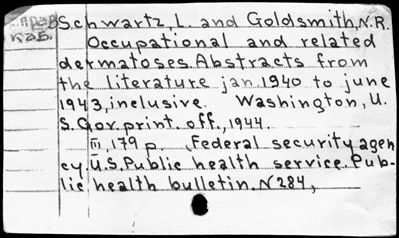 Schwartz, L. and Goldsmith, N.R.
каб.
Occupational and related
dermatoses. Abstracts from
the literature jan. 1940 to june
1943, inclusive. Washington, U.
S. Gov. print. off., 1944.
III, 179 p. Federal security agen
cy. U.S. Public health service. Pub-
lic health bulletin. N 284,